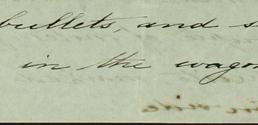 bullets, and s
in the wagon